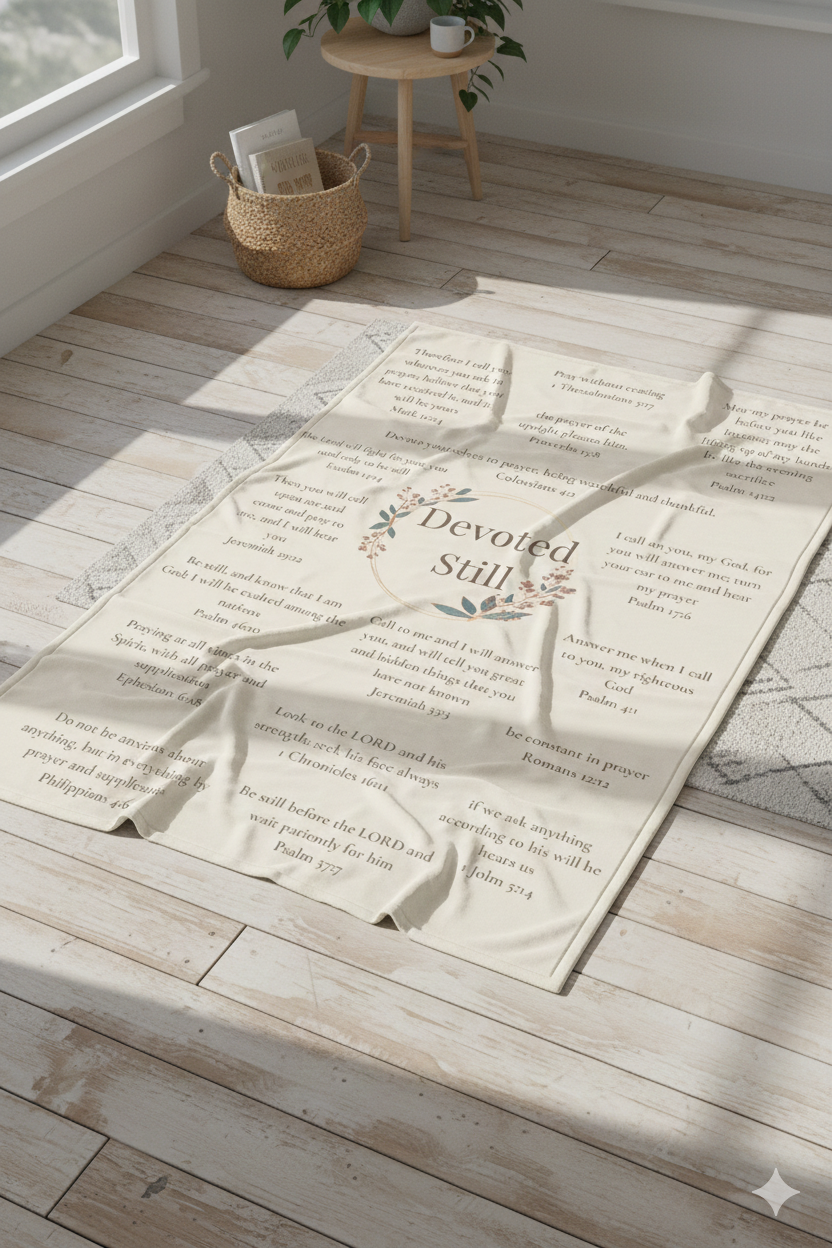 Therefore I tell you
have received it, and it
will be yours
Mark
Pray without ceasing
1 Thessalonians 5:17
the prayer of the
upright pleases him.
Proverbs 15:8
May my prayer be
before you like
may the
lifting up of my hands
be like the evening
sacrifice
Psalm 141:2
Devote yourselves to prayer, being watchful and thankful.
Colossians 4:2
The Lord will fight for you; you
need only to be still
Exodus 14:14
Then you will call
upon me and
come and pray to
me, and I will hear
you
Jeremiah 29:12
Devoted
Still
I call on you, my God, for
you will answer me; turn
your ear to me and hear
my prayer
Psalm 17:6
Be still, and know that I am
God; I will be exalted among the
nations
Psalm 46:10
Call to me and I will answer
you, and will tell you great
and hidden things that you
have not known
Jeremiah 33:3
Answer me when I call
to you, my righteous
God
Psalm 4:1
Praying at all times in the
Spirit, with all prayer and
supplication
Ephesians 6:18
Look to the LORD and his
strength; seek his face always
1 Chronicles 16:11
be constant in prayer
Romans 12:12
Do not be anxious about
anything, but in everything by
prayer and supplication
Philippians 4:6
Be still before the LORD and
wait patiently for him
Psalm 37:7
if we ask anything
according to his will he
hears us
1 John 5:14